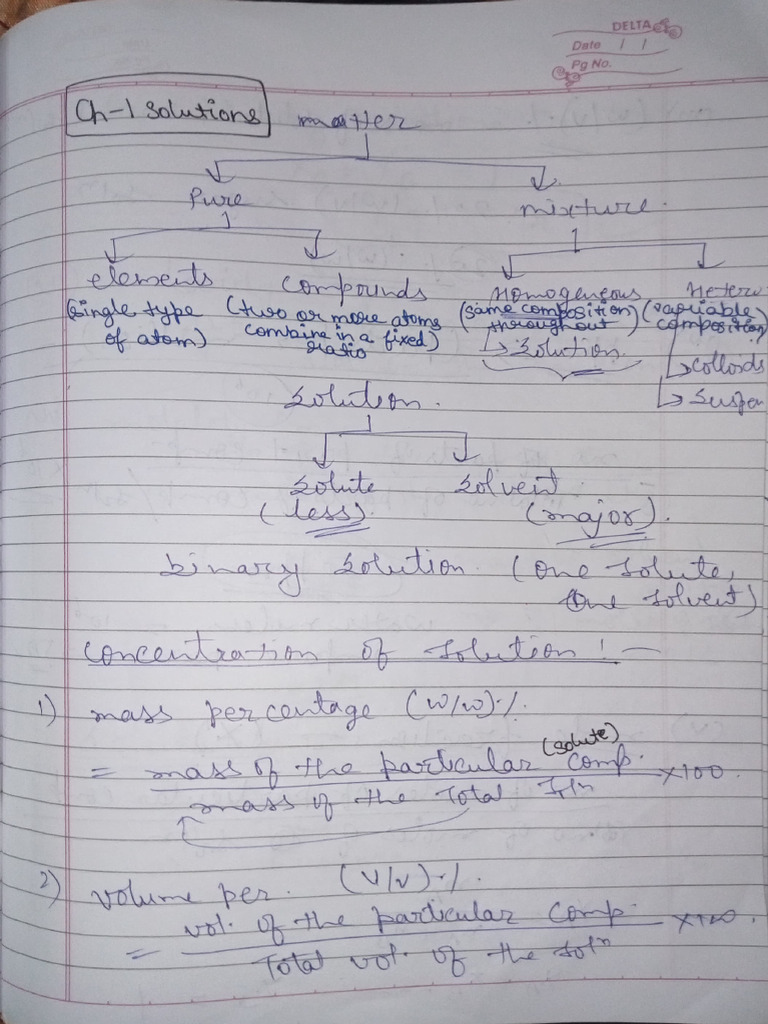 DELTA
Date / /
Pg No.
Ch-1 Solutions
matter
Pure mixture.
elements compounds Homogeneous Hetero
(single type (two or more atoms (same composition) (variable
of atom) combine in a fixed) throughout composition)
ratio
↳ Solution.
↳ Colloids
↳ Suspen
Solution.
Solute Solvent
(less). (major).
binary solution. (One solute,
One solvent)
Concentration of solution! —
1) mass percentage (w/w)·/.
= mass of the particular (solute) Comp. ×100.
mass of the Total Sol^n
2) volume per. (V/v)·/.
= vol. of the particular Comp. ×100.
Total vol. of the sol^n